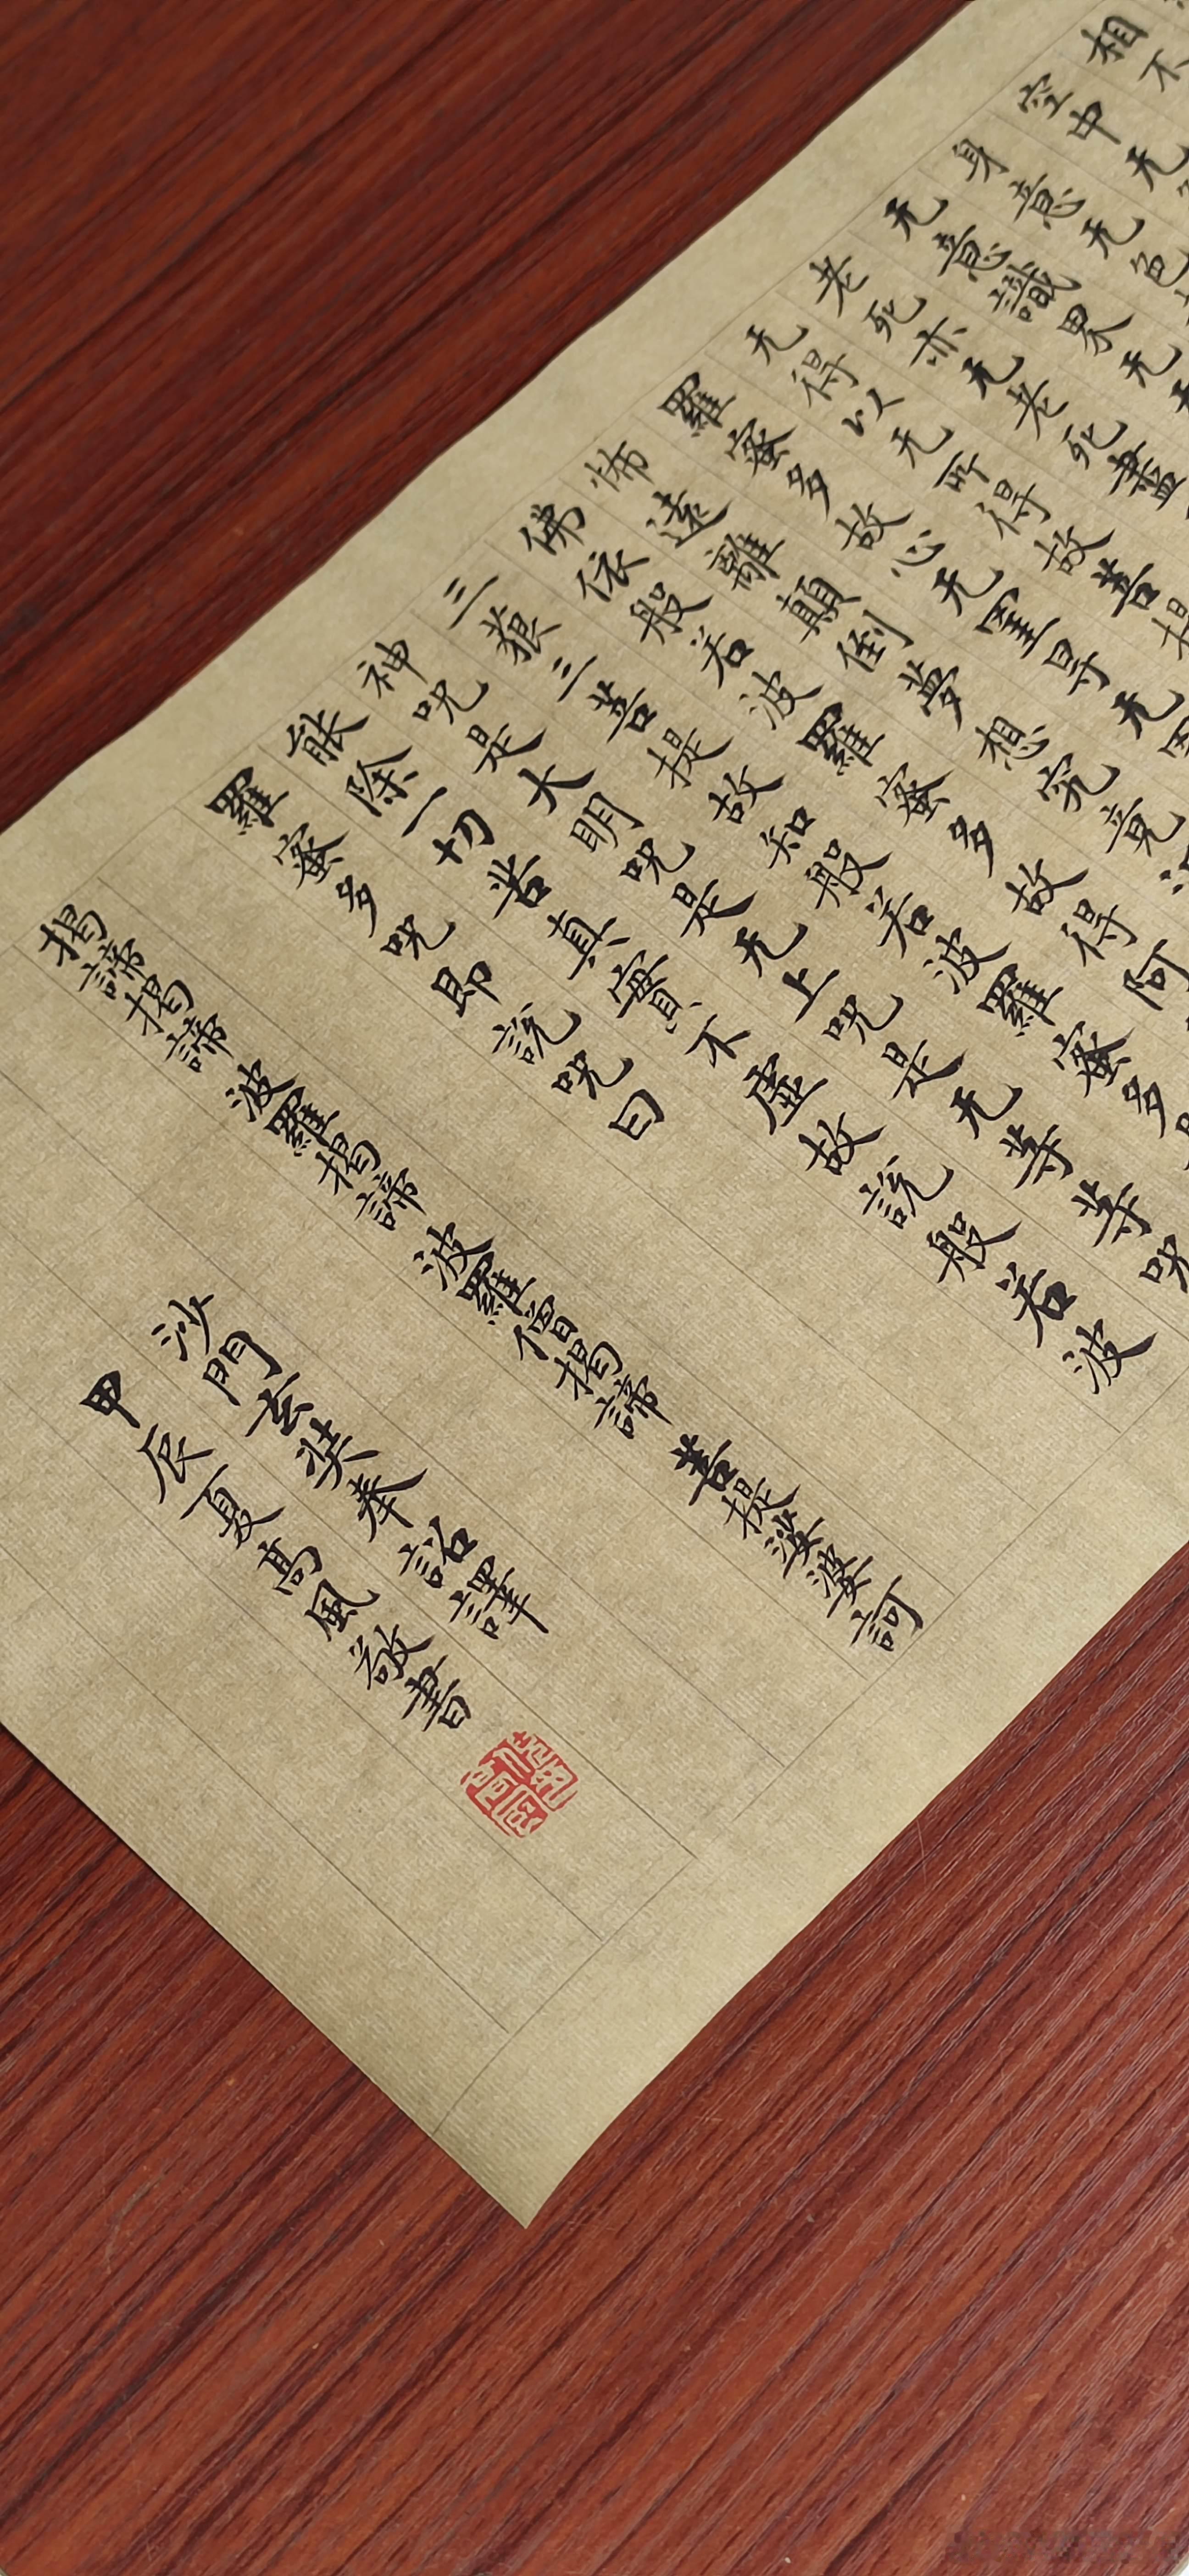 相不
空中无
身意无色
无意識界无
老死亦无老死盡
无得以无所得故菩提
羅蜜多故心无罣㝵无罣
怖遠離顛倒夢想究竟
佛依般若波羅蜜多故得阿
三藐三菩提故知般若波羅蜜多
神咒是大明咒是无上咒是无等等咒
能除一切苦真實不虛故說般若波
羅蜜多咒即說咒曰
揭諦揭諦 波羅揭諦 波羅僧揭諦 菩提娑婆訶
沙門玄奘奉詔譯
甲辰夏高風敬書